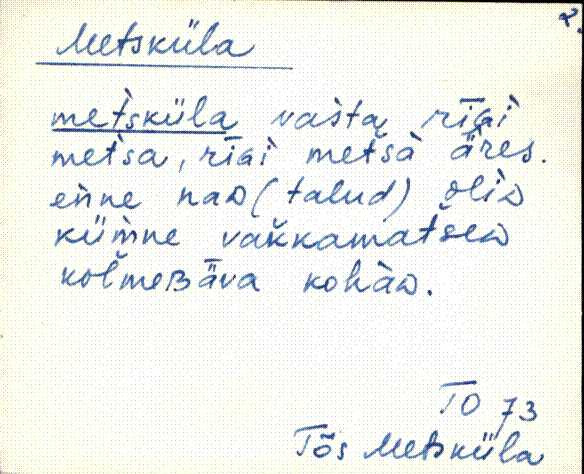 2.
Metsküla
metsküla vasta rīGi
metsa, rīGi metsa ǟres.
enne naD (talud) oliD
kümne vakkamatseD
kolmeBǟva kohaD.
TO 73
Tõs Metsküla